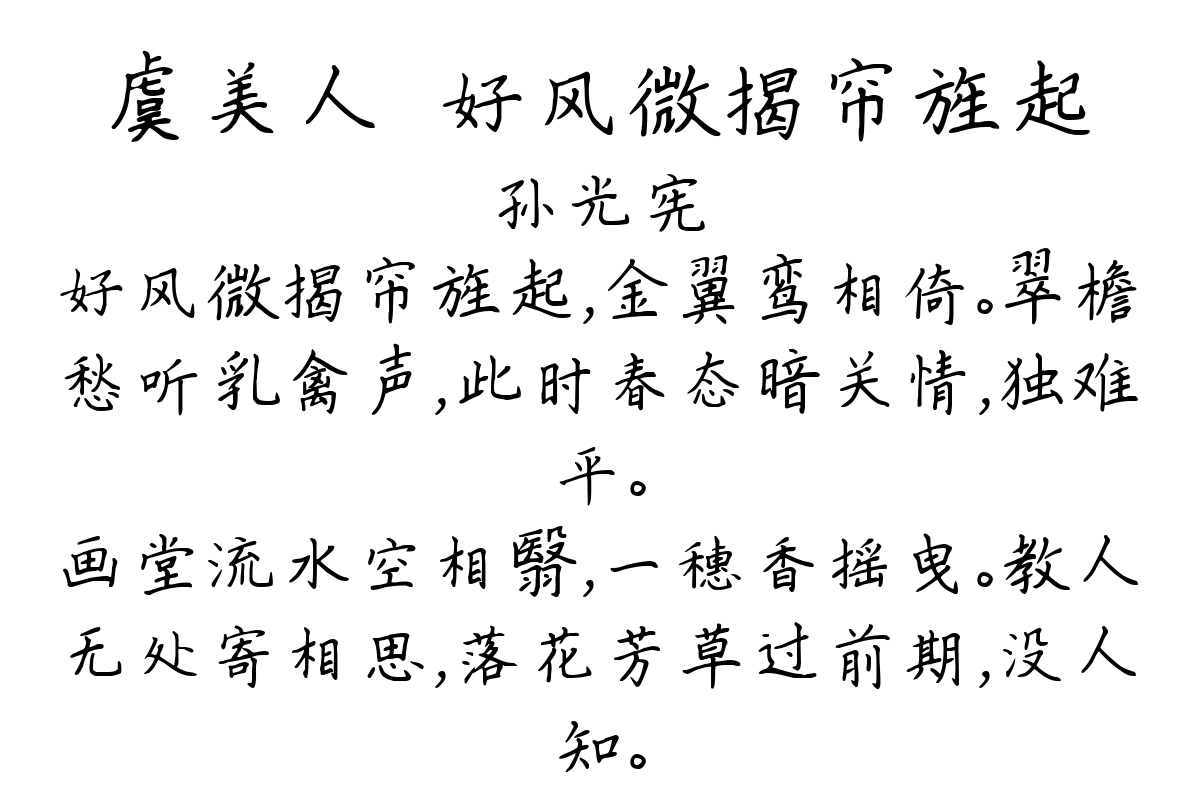 虞美人 好风微揭帘旌起
孙光宪
好风微揭帘旌起,金翼鸾相倚。翠檐
愁听乳禽声,此时春态暗关情,独难
平。
画堂流水空相翳,一穗香摇曳。教人
无处寄相思,落花芳草过前期,没人
知。